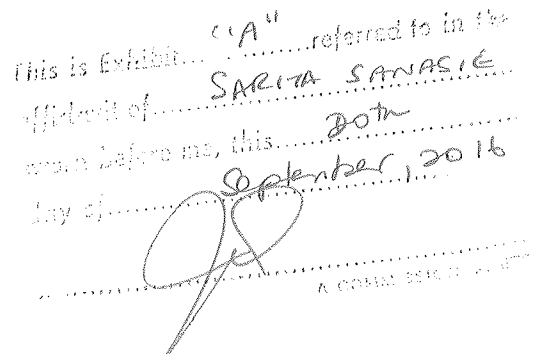 This is Exhibit... "A" ......referred to in the
affidavit of...... SARITA SANASIE
sworn before me, this...... 20th
day of........ September, 2016
A COMMISSIONER